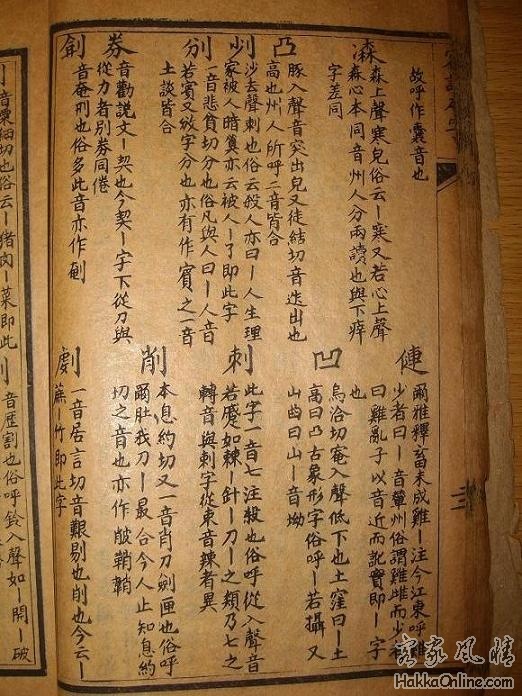 故呼作囊音也
潹
森上聲寒皃俗云丨寒又若心上聲
森心本同音州人分兩讀也與下痒
字差同
凸
豚入聲音突出皃又徒結切音迭出也
高也州人所呼二音皆合
沙去聲刺也俗云殺人亦曰丨人生理
家被人暗算亦云被人丨了即此字
別
一音悲貧切分也俗凡與人曰丨人音
若賓又攽字分也亦有作賓之一音
土談皆合
券
音勸説文丨契也今契丨字下從刀與
從力者別券同倦
音奄刑也俗多此音亦作剦
僆
爾雅釋畜未成雞丨注今江東呼雞
少者曰丨音輦州俗謂雞雌而少者
曰雞亂子以音近而訛實即丨字
也
凹
烏洽切庵入聲低下也土窪曰丨土
高曰凸古象形字俗呼丨若攝又
山凹曰山丨音坳
刺
此字一音七注殺也俗呼從入聲音
若蹙如棘丨針丨刀丨之類乃七之
轉音與剌字從束音辣者異
削
本息約切又一音肖刀劍匣也俗呼
爾肚我刀丨最合今人止知息約
切之音也亦作鞘
劇
一音居言切音艱剔也削也今云丨
蔗丨竹即此字
音票細切也俗云丨猪肉丨菜即此
音歷割也俗呼鈴入聲如丨開丨破
客家風情
HakkaOnline.com